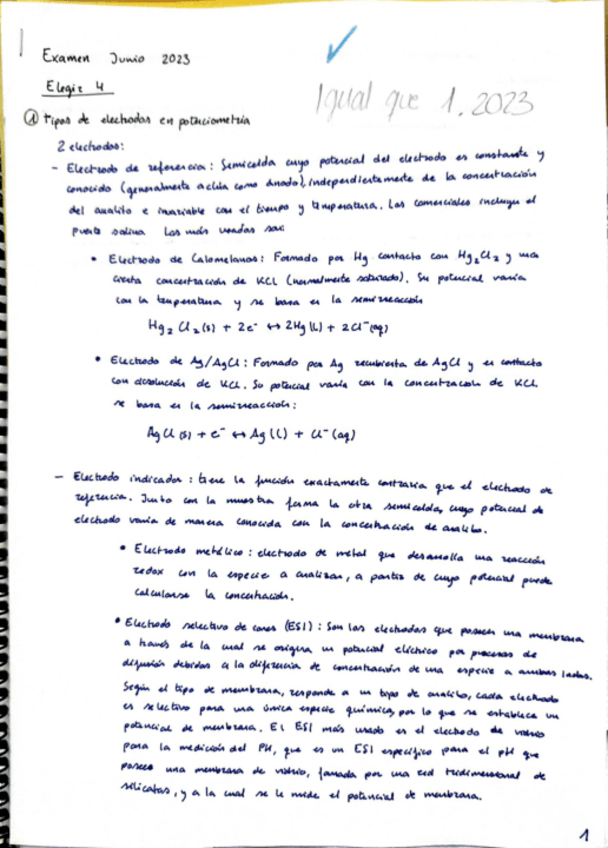 Examen Junio 2023
Igual que 1. 2023
Elegir 4
① Tipos de electrodos en potenciometría
2 electrodos:
- Electrodo de referencia: Semicelda cuyo potencial del electrodo es constante y
conocido (generalmente actúa como ánodo), independientemente de la concentración
del analito e invariable con el tiempo y temperatura. Los comerciales incluyen el
puente salino. Los más usados son:
• Electrodo de Calomelanos: Formado por Hg contacto con Hg₂Cl₂ y una
cierta concentración de KCl (normalmente saturado). Su potencial varía
con la temperatura y se basa en la semirreacción
Hg₂Cl₂(s) + 2e⁻ ↔ 2Hg(l) + 2Cl⁻(aq)
• Electrodo de Ag/AgCl: Formado por Ag recubierta de AgCl y en contacto
con disolución de KCl. Su potencial varía con la concentración de KCl.
se basa en la semirreacción:
AgCl(s) + e⁻ ↔ Ag(l) + Cl⁻(aq)
- Electrodo indicador: tiene la función exactamente contraria que el electrodo de
referencia. Junto con la muestra forma la otra semicelda, cuyo potencial de
electrodo varía de manera conocida con la concentración de analito.
• Electrodo metálico: electrodo de metal que desarrolla una reacción
redox con la especie a analizar, a partir de cuyo potencial puede
calcularse la concentración.
• Electrodo selectivo de iones (ESI): Son los electrodos que poseen una membrana
a través de la cual se origina un potencial eléctrico por procesos de
difusión debidos a la diferencia de concentración de una especie a ambos lados.
Según el tipo de membrana, responde a un tipo de analito, cada electrodo
es selectivo para una única especie química, por lo que se establece un
potencial de membrana. El ESI más usado es el electrodo de vidrio
para la medición del PH, que es un ESI específico para el pH que
posee una membrana de vidrio, formada por una red tridimensional de
silicatos, y a la cual se le mide el potencial de membrana.
1